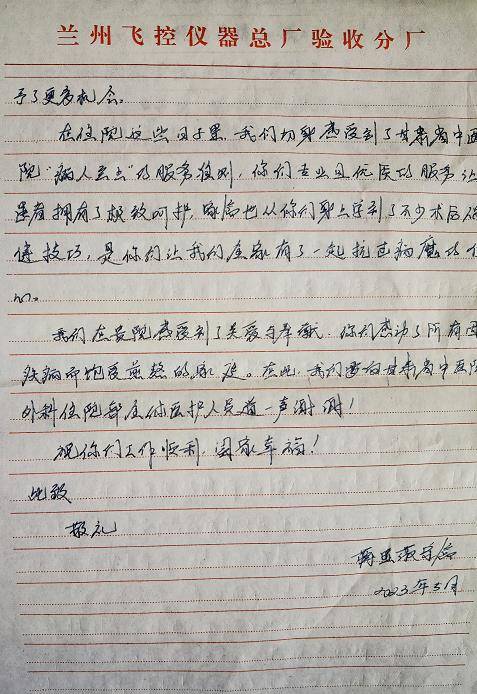 兰州飞控仪器总厂验收分厂
予了更多机会。
在住院这些日子里,我们切身感受到了甘肃省中医
院“病人至上”的服务准则,你们专业且优质的服务让
患者拥有了极致呵护,家属也从你们身上学到了不少术后保
健技巧,是你们让我们全家有了一起抗击病魔的信
心。
我们在贵院感受到了关爱与奉献,你们感动了所有因
疾病而饱受煎熬的家庭。在此,我们要向甘肃省中医院
外科住院部全体医护人员道一声谢谢!
祝你们工作顺利,阖家幸福!
此致
敬礼
2023年3月